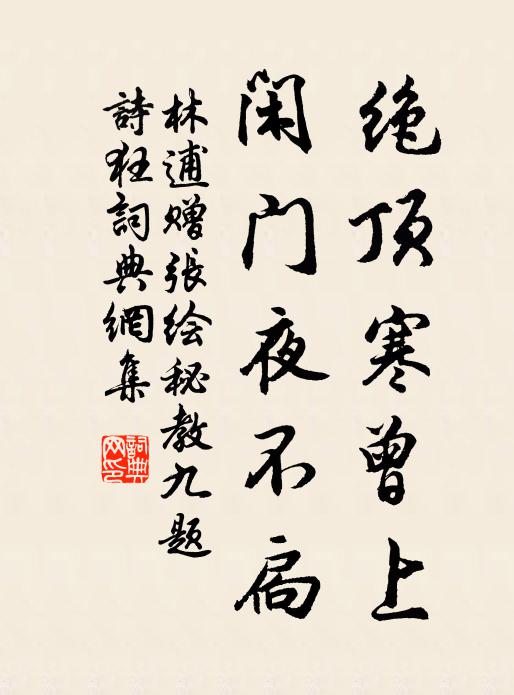 绝顶寒曾上
闲门夜不扃
林逋赠张绘秘教九题
詩狂詞典網集
詞典网印